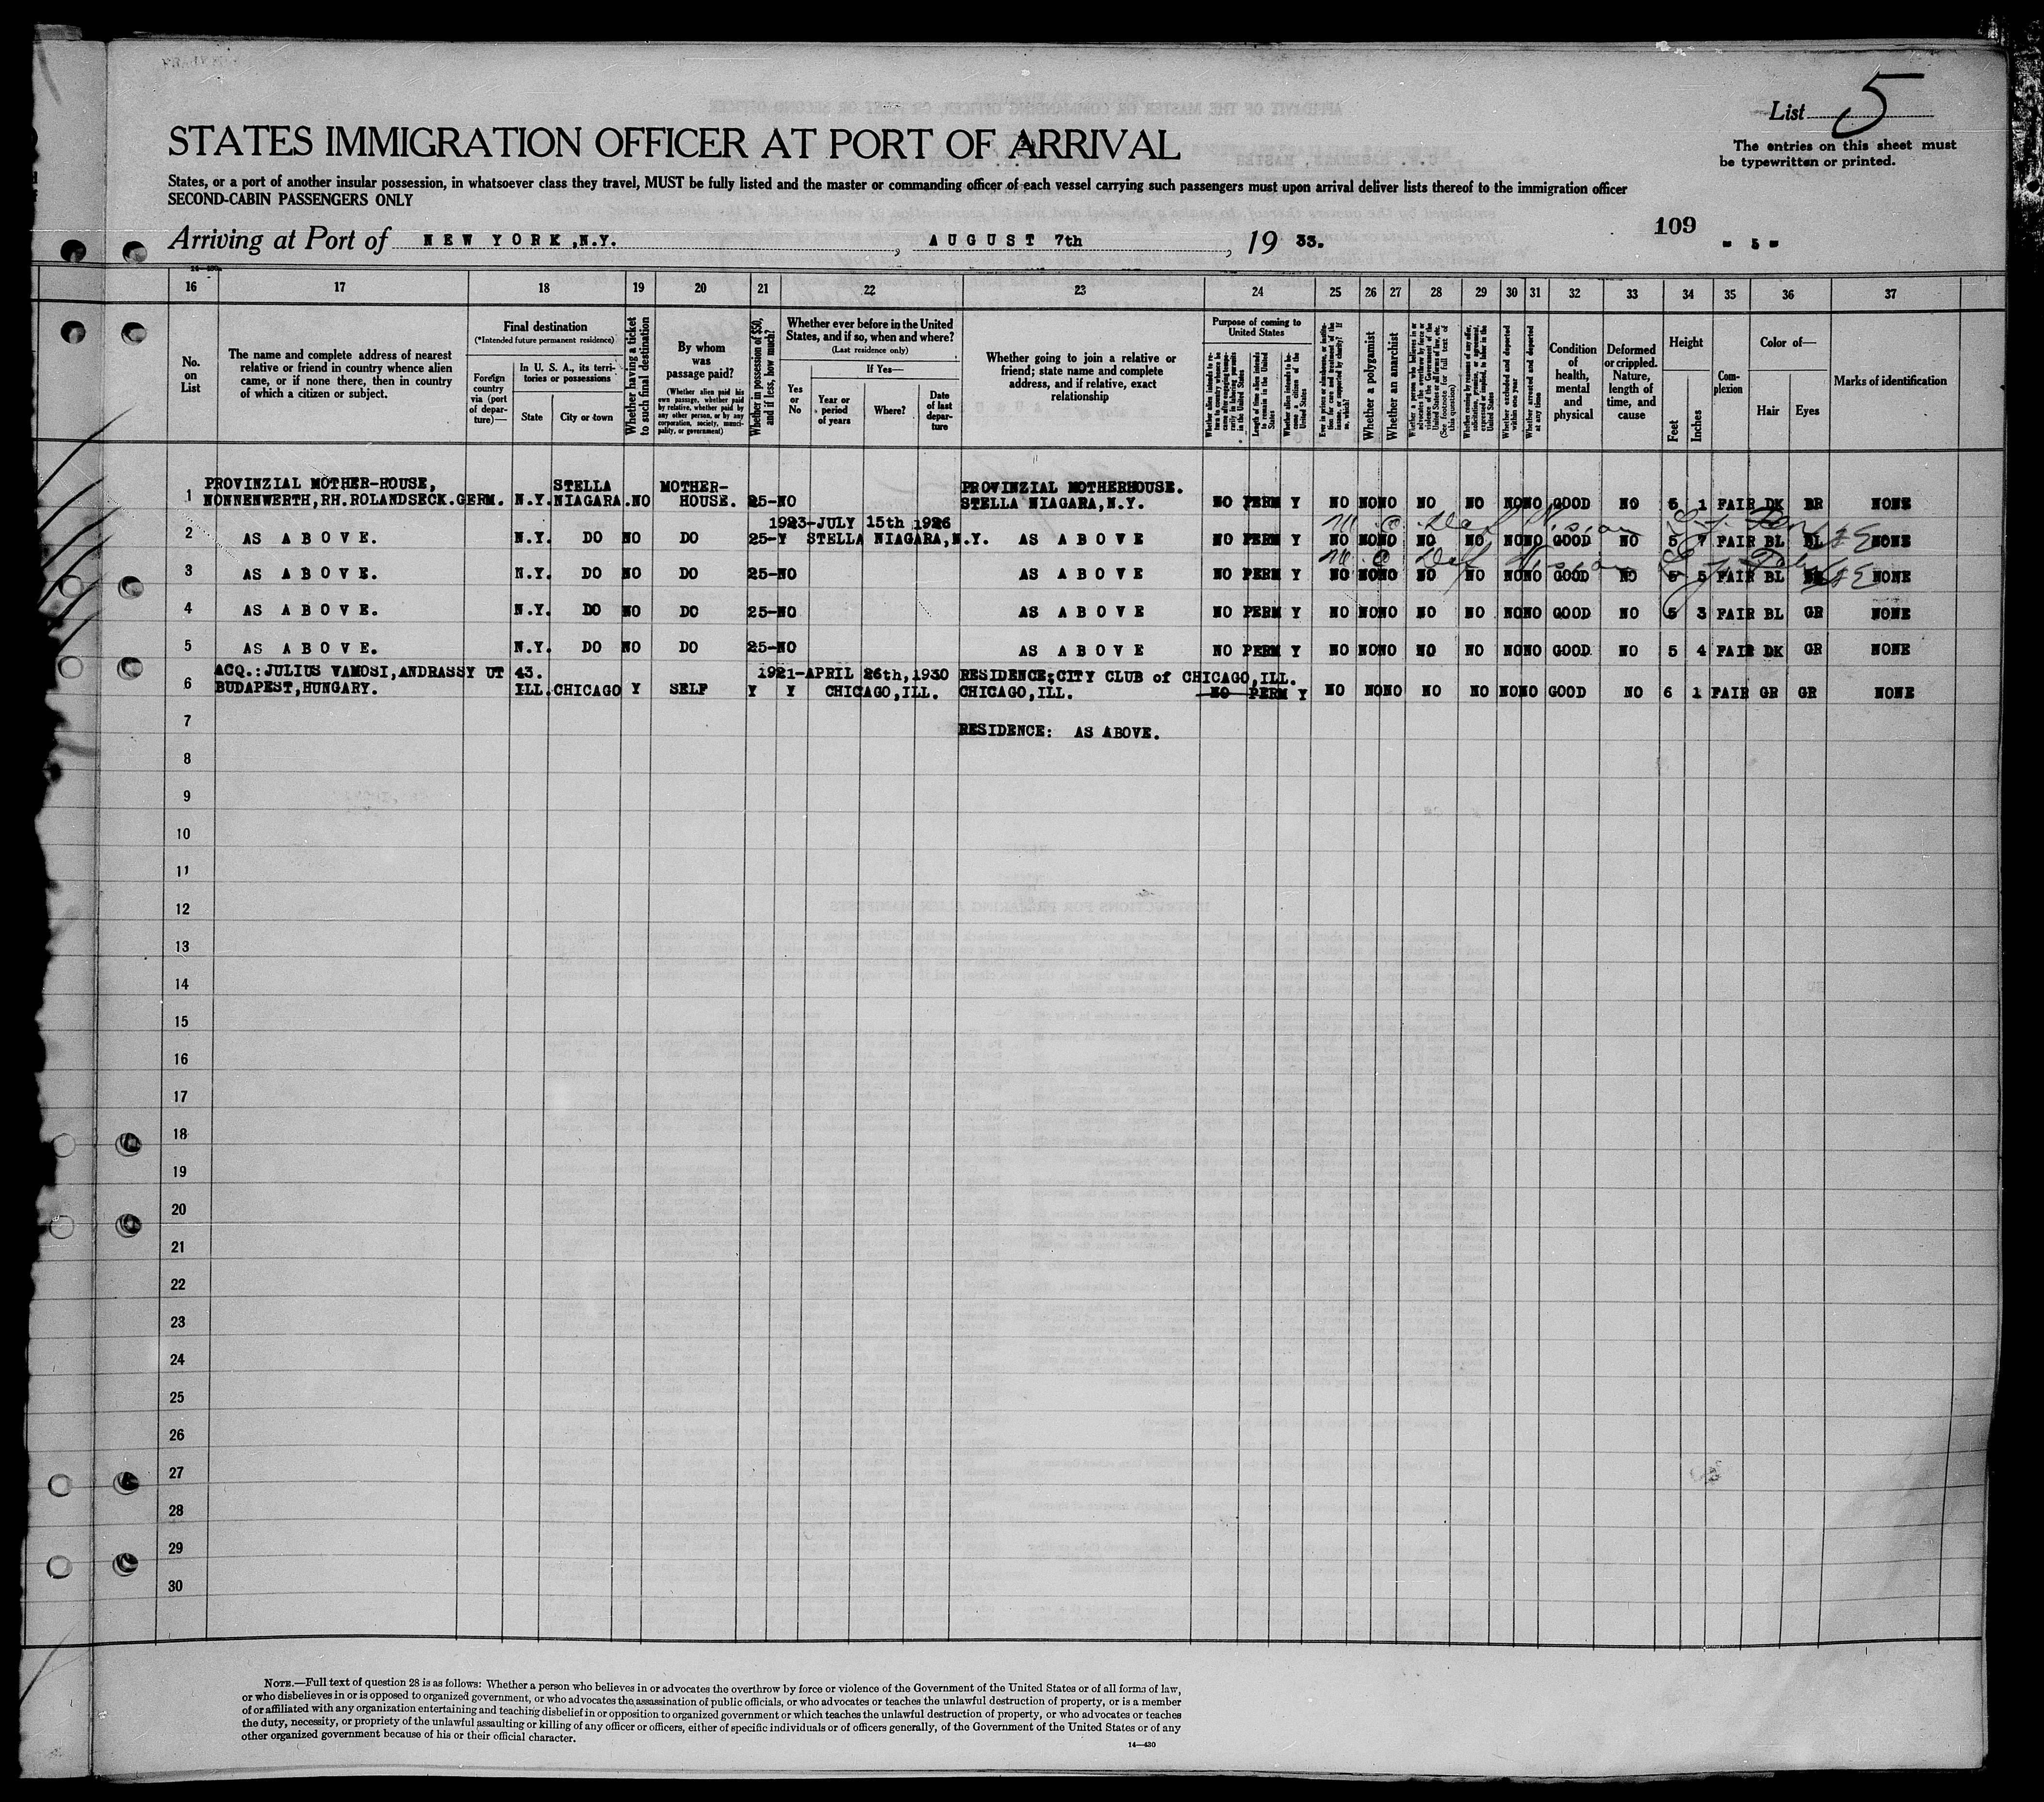 List 5
The entries on this sheet must
be typewritten or printed.
STATES IMMIGRATION OFFICER AT PORT OF ARRIVAL
States, or a port of another insular possession, in whatsoever class they travel, MUST be fully listed and the master or commanding officer of each vessel carrying such passengers must upon arrival deliver lists thereof to the immigration officer
SECOND-CABIN PASSENGERS ONLY
Arriving at Port of NEW YORK, N.Y., AUGUST 7th, 1933.
109
- 5 -
16 17 18 19 20 21 22 23 24 25 26 27 28 29 30 31 32 33 34 35 36 37
No. on List
The name and complete address of nearest relative or friend in country whence alien came, or if none there, then in country of which a citizen or subject.
Final destination
(*Intended future permanent residence)
Foreign country via (port of departure)—
In U. S. A., its territories or possessions
State
City or town
Whether having a ticket to such final destination
By whom was passage paid?
(Whether alien paid his own passage, whether paid by relative, whether paid by any other person, or by any corporation, society, municipality, or government)
Whether in possession of $50, and if less, how much?
Whether ever before in the United States, and if so, when and where?
(Last residence only)
Yes or No
If Yes—
Year or period of years
Where?
Date of last departure
Whether going to join a relative or friend; state name and complete address, and if relative, exact relationship
Purpose of coming to United States
Length of time alien intends to remain in the United States
Whether alien intends to become a citizen of the United States
Whether a polygamist
Whether an anarchist
(See footnote for full text of this question)
Whether excluded and deported within one year
Whether arrested and deported at any time
Condition of health, mental and physical
Deformed or crippled. Nature, length of time, and cause
Height
Feet
Inches
Complexion
Color of—
Hair
Eyes
Marks of identification
PROVINZIAL MOTHER-HOUSE, STELLA MOTHER- PROVINZIAL MOTHERHOUSE.
1 NONNENWERTH, RH. ROLANDSECK. GERM. N.Y. NIAGARA. NO HOUSE. 25-NO STELLA NIAGARA, N.Y. NO PERM Y NO NO NO NO NO NO NO GOOD NO 5 1 FAIR DK BR NONE
1923-JULY 15th 1926
2 AS ABOVE. N.Y. DO NO DO 25-Y STELLA NIAGARA, N.Y. AS ABOVE NO PERM Y NO NO NO NO NO NO NO GOOD NO 5 7 FAIR BL BL NONE
3 AS ABOVE. N.Y. DO NO DO 25-NO AS ABOVE NO PERM Y NO NO NO NO NO NO NO GOOD NO 5 5 FAIR BL NONE
4 AS ABOVE. N.Y. DO NO DO 25-NO AS ABOVE NO PERM Y NO NO NO NO NO NO NO GOOD NO 5 3 FAIR BL GR NONE
5 AS ABOVE. N.Y. DO NO DO 25-NO AS ABOVE NO PERM Y NO NO NO NO NO NO NO GOOD NO 5 4 FAIR DK GR NONE
ACQ.: JULIUS VAMOSI, ANDRASSY UT 43. 1921-APRIL 26th, 1930 RESIDENCE; CITY CLUB of CHICAGO, ILL.
6 BUDAPEST, HUNGARY. ILL. CHICAGO Y SELF Y Y CHICAGO, ILL. CHICAGO, ILL. NO PERM Y NO NO NO NO NO NO NO GOOD NO 6 1 FAIR GR GR NONE
7 RESIDENCE: AS ABOVE.
8
9
10
11
12
13
14
15
16
17
18
19
20
21
22
23
24
25
26
27
28
29
30
NOTE.—Full text of question 28 is as follows: Whether a person who believes in or advocates the overthrow by force or violence of the Government of the United States or of all forms of law,
or who disbelieves in or is opposed to organized government, or who advocates the assassination of public officials, or who advocates or teaches the unlawful destruction of property, or is a member
of or affiliated with any organization entertaining and teaching disbelief in or opposition to organized government or which teaches the unlawful destruction of property, or who advocates or teaches
the duty, necessity, or propriety of the unlawful assaulting or killing of any officer or officers, either of specific individuals or of officers generally, of the Government of the United States or of any
other organized government because of his or their official character.
14—430